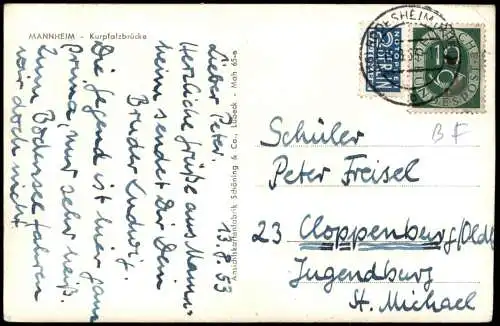 MANNHEIM - Kurpfalzbrücke
13.8.53
Lieber Peter.
Herzliche Grüße aus Mann-
heim sendet Dir Dein
Bruder Ludwig.
Die Gegend ist hier ganz
prima, nur sehr heiß.
Zum Bodensee fahren
wir doch nicht.
Ansichtskartenfabrik Schöning & Co., Lübeck - Mah 65-a
NOTOPFER
2 BERLIN
STEUERMARKE
10
DEUTSCHE
BUNDESPOST
B F
Schüler
Peter Freisel
23 Cloppenburg/Oldb
Jugendburg
St. Michael